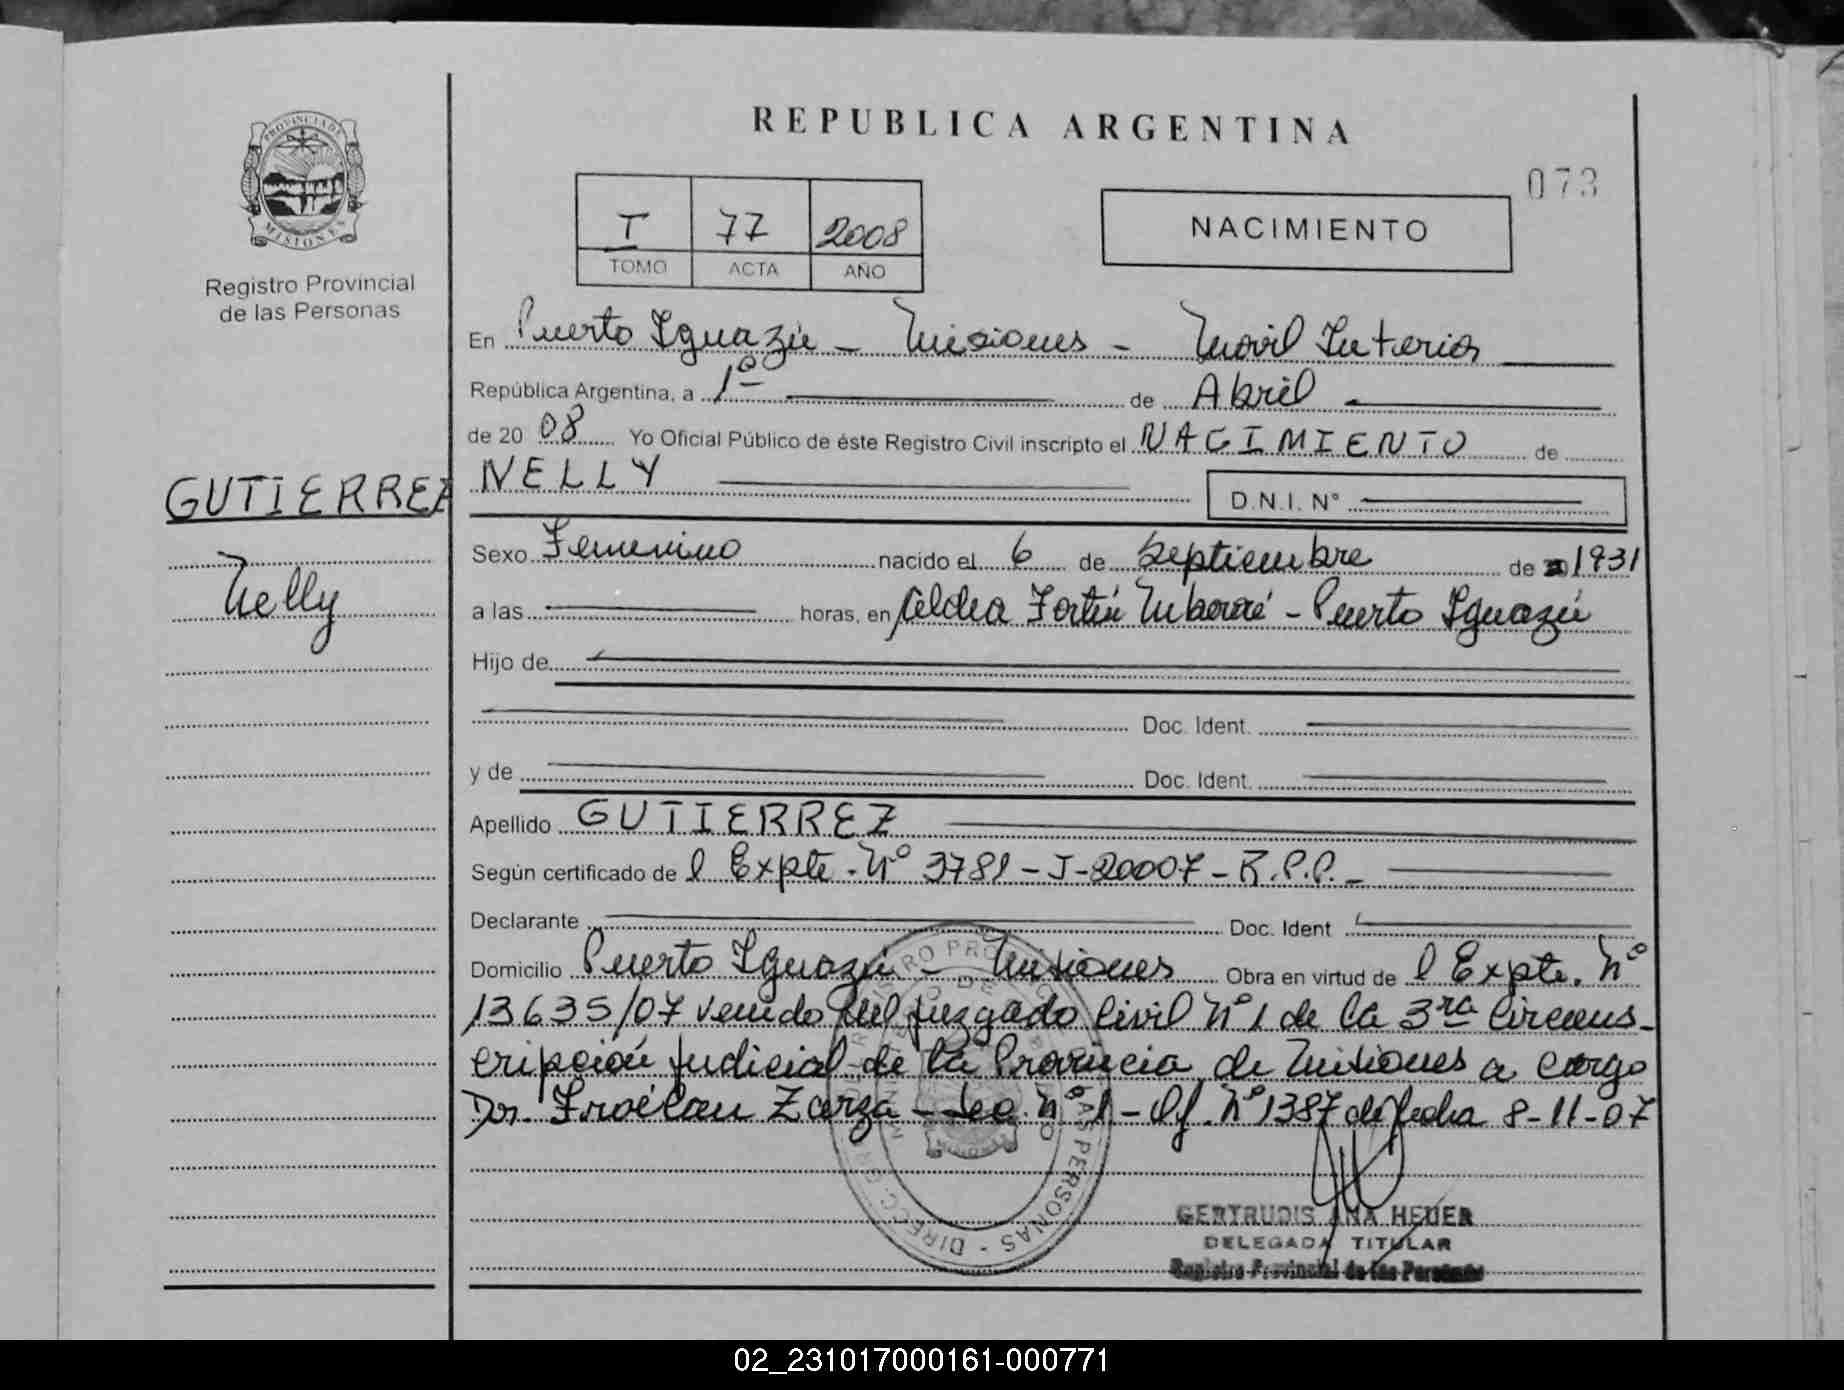 REPUBLICA ARGENTINA
073
PROVINCIA DE
MISIONES
Registro Provincial
de las Personas
T 77 2008
TOMO ACTA AÑO
NACIMIENTO
En Puerto Iguazú - Misiones - Movil Interior
República Argentina, a 1º de Abril
de 20 08 Yo Oficial Público de éste Registro Civil inscripto el NACIMIENTO de
GUTIERREZ
Nelly
NELLY D.N.I. N°
Sexo Femenino nacido el 6 de Septiembre de 1931
a las horas, en Aldea Fortín Mbororé - Puerto Iguazú
Hijo de
Doc. Ident.
y de Doc. Ident.
Apellido GUTIERREZ
Según certificado de l Expte. Nº 3781-J-20007-R.P.P.
Declarante Doc. Ident
Domicilio Puerto Iguazú - Misiones Obra en virtud de l Expte. Nº
13635/07 venido del Juzgado Civil Nº 1 de la 3ra Circuns-
cripción Judicial de la Provincia de Misiones a cargo
Dr. Froélan Zarza - Sec. Nº 1 - Of. Nº 1387 de fecha 8-11-07
GERTRUDIS ANA HEUER
DELEGADA TITULAR
Registro Provincial de las Personas
02_231017000161-000771